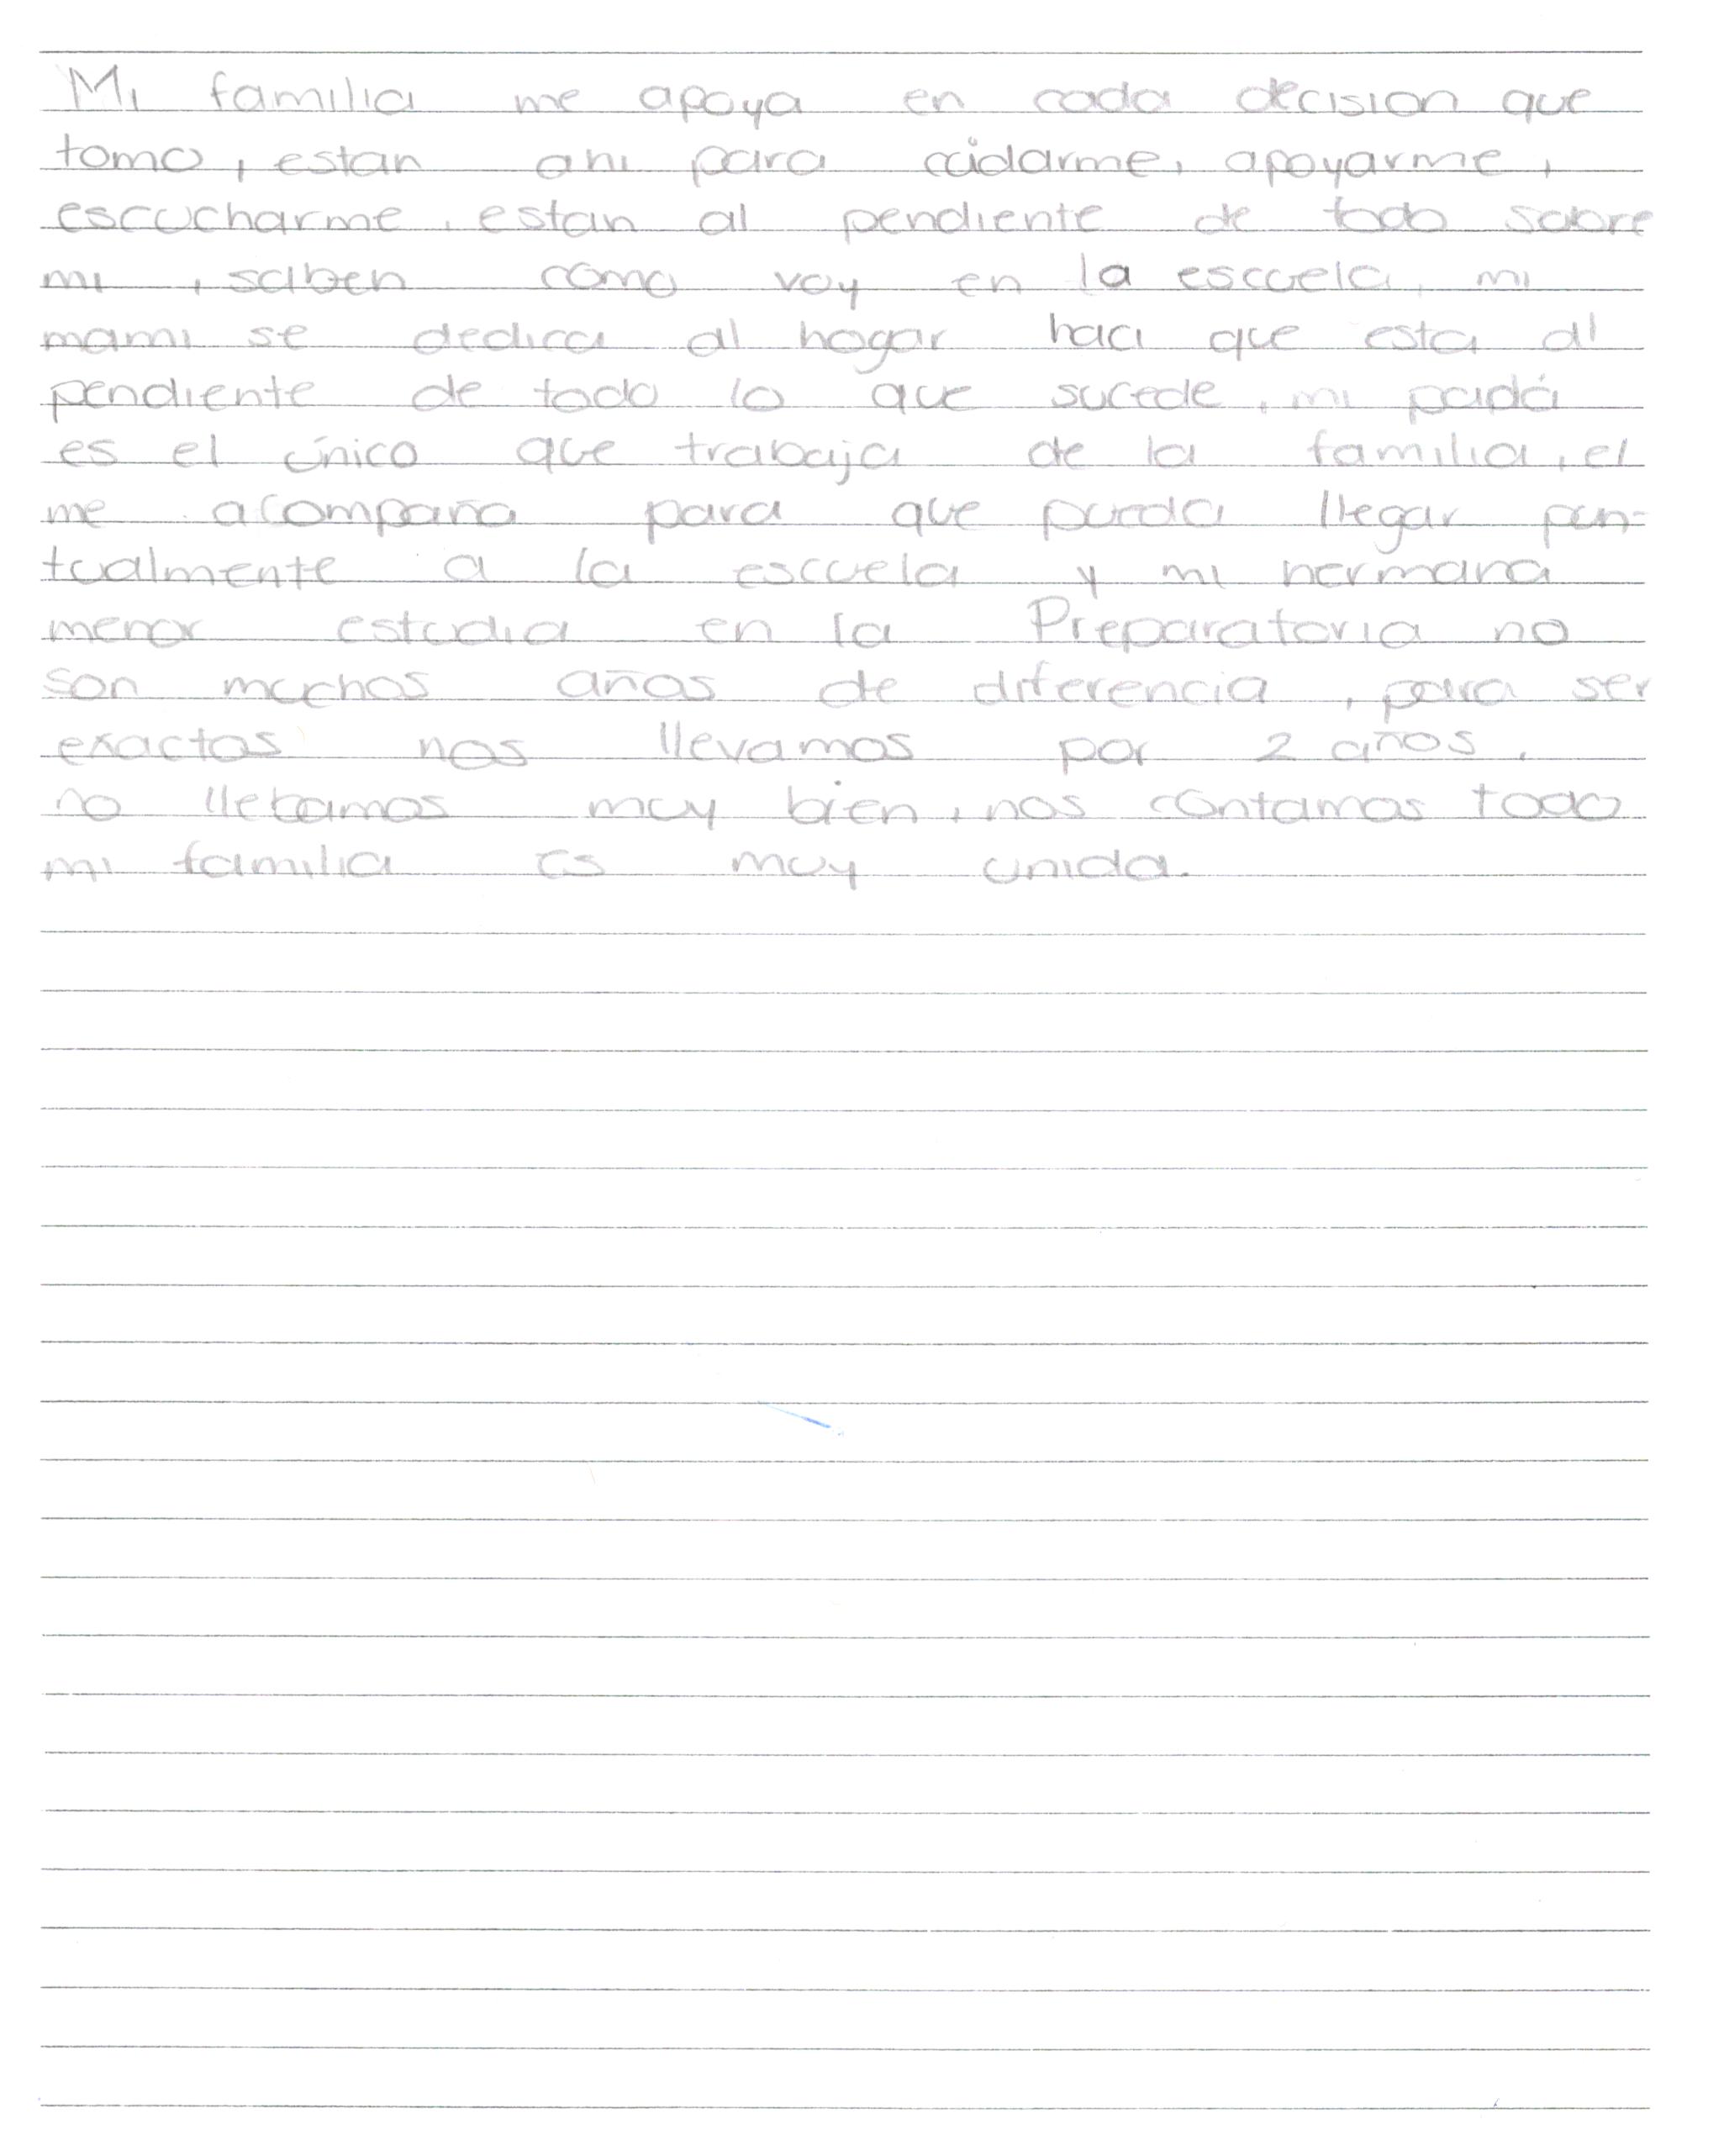 Mi familia me apoya en cada decision que
tomo, estan ahi para cuidarme, apoyarme,
escucharme, estan al pendiente de todo sobre
mi, saben como voy en la escuela, mi
mami se dedica al hogar haci que esta al
pendiente de todo lo que sucede, mi papá
es el único que trabaja de la familia, el
me acompaña para que pueda llegar pun-
tualmente a la escuela y mi hermana
menor estudia en la Preparatoria no
son muchos años de diferencia, para ser
exactos nos llevamos por 2 años.
no llebamos muy bien, nos contamos todo
mi familia es muy unida.